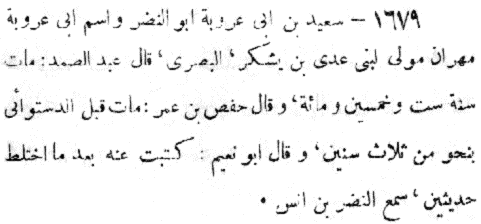 ١٦٧٩ – سعيد بن ابى عروبة ابو النضر و اسم ابى عروبة
مهران مولى لبنى عدى بن يشكر، البصرى، قال عبد الصمد: مات
سنة ست و خمسين و مائة، و قال حفص بن عمر: مات قبل الدستوائى
بنحو من ثلاث سنين، و قال ابو نعيم: كتبت عنه بعد ما اختلط
حديثين، سمع النضر بن انس •